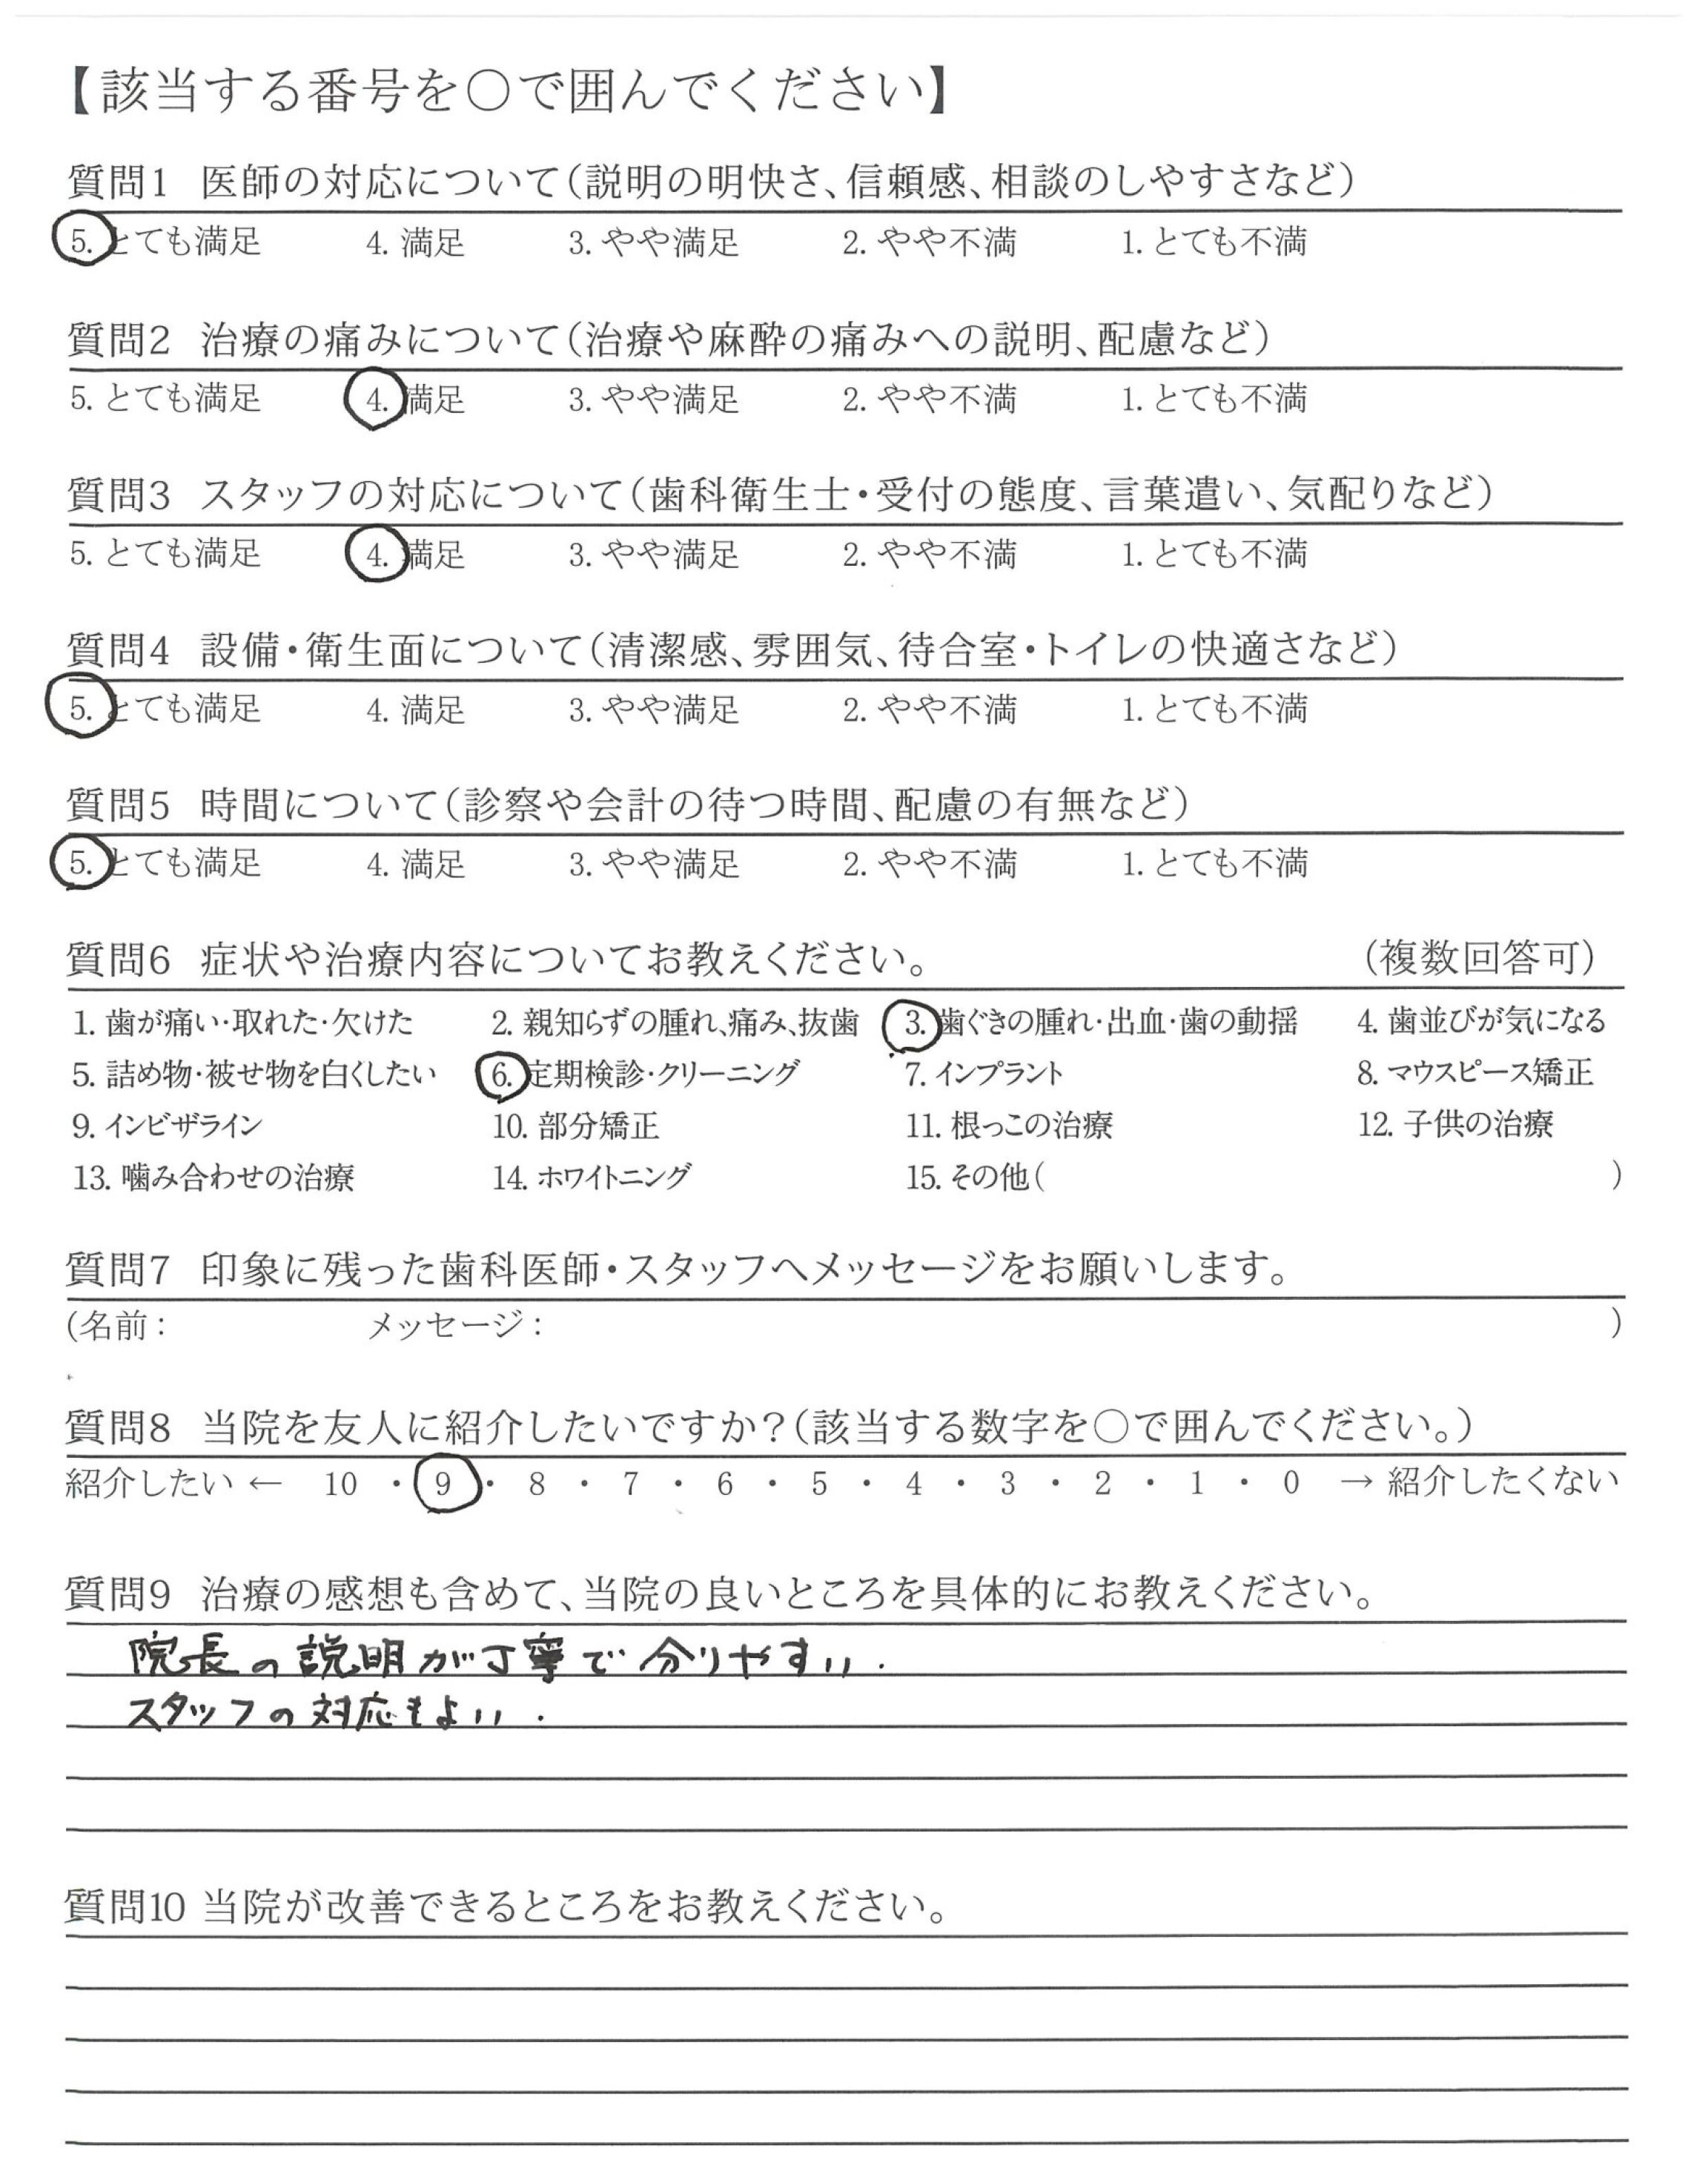 【該当する番号を○で囲んでください】
質問1 医師の対応について(説明の明快さ、信頼感、相談のしやすさなど)
5. とても満足 4. 満足 3. やや満足 2. やや不満 1. とても不満
質問2 治療の痛みについて(治療や麻酔の痛みへの説明、配慮など)
5. とても満足 4. 満足 3. やや満足 2. やや不満 1. とても不満
質問3 スタッフの対応について(歯科衛生士・受付の態度、言葉遣い、気配りなど)
5. とても満足 4. 満足 3. やや満足 2. やや不満 1. とても不満
質問4 設備・衛生面について(清潔感、雰囲気、待合室・トイレの快適さなど)
5. とても満足 4. 満足 3. やや満足 2. やや不満 1. とても不満
質問5 時間について(診察や会計の待つ時間、配慮の有無など)
5. とても満足 4. 満足 3. やや満足 2. やや不満 1. とても不満
質問6 症状や治療内容についてお教えください。 (複数回答可)
1. 歯が痛い・取れた・欠けた 2. 親知らずの腫れ、痛み、抜歯 3. 歯ぐきの腫れ・出血・歯の動揺 4. 歯並びが気になる
5. 詰め物・被せ物を白くしたい 6. 定期検診・クリーニング 7. インプラント 8. マウスピース矯正
9. インビザライン 10. 部分矯正 11. 根っこの治療 12. 子供の治療
13. 噛み合わせの治療 14. ホワイトニング 15. その他( )
質問7 印象に残った歯科医師・スタッフへメッセージをお願いします。
(名前: メッセージ: )
質問8 当院を友人に紹介したいですか?(該当する数字を○で囲んでください。)
紹介したい ← 10 ・ 9 ・ 8 ・ 7 ・ 6 ・ 5 ・ 4 ・ 3 ・ 2 ・ 1 ・ 0 → 紹介したくない
質問9 治療の感想も含めて、当院の良いところを具体的にお教えください。
院長の説明が丁寧で分りやすい.
スタッフの対応もよい.
質問10 当院が改善できるところをお教えください。